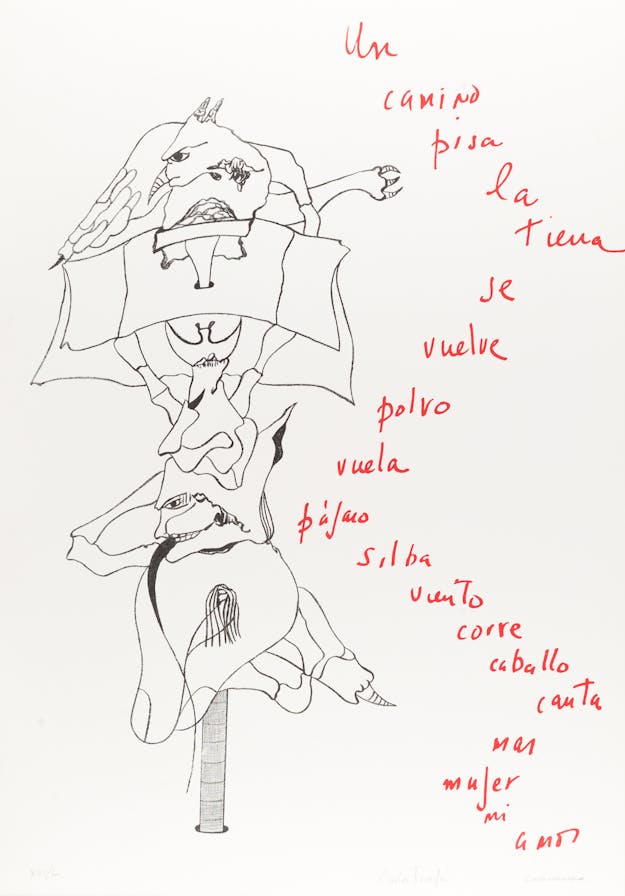 Un
camino
pisa
la
tierra
se
vuelve
polvo
vuela
pájaro
silba
viento
corre
caballo
canta
mar
mujer
mi
amor